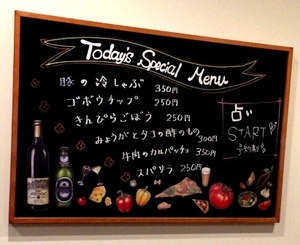 Today's Special Menu
豚の冷しゃぶ 350円
ゴボウチップ 250円
きんぴらごぼう 250円
みょうがとタコの酢のもの 300円
牛肉のカルパッチョ 350円
スパサラ 250円
占い
START
予約制